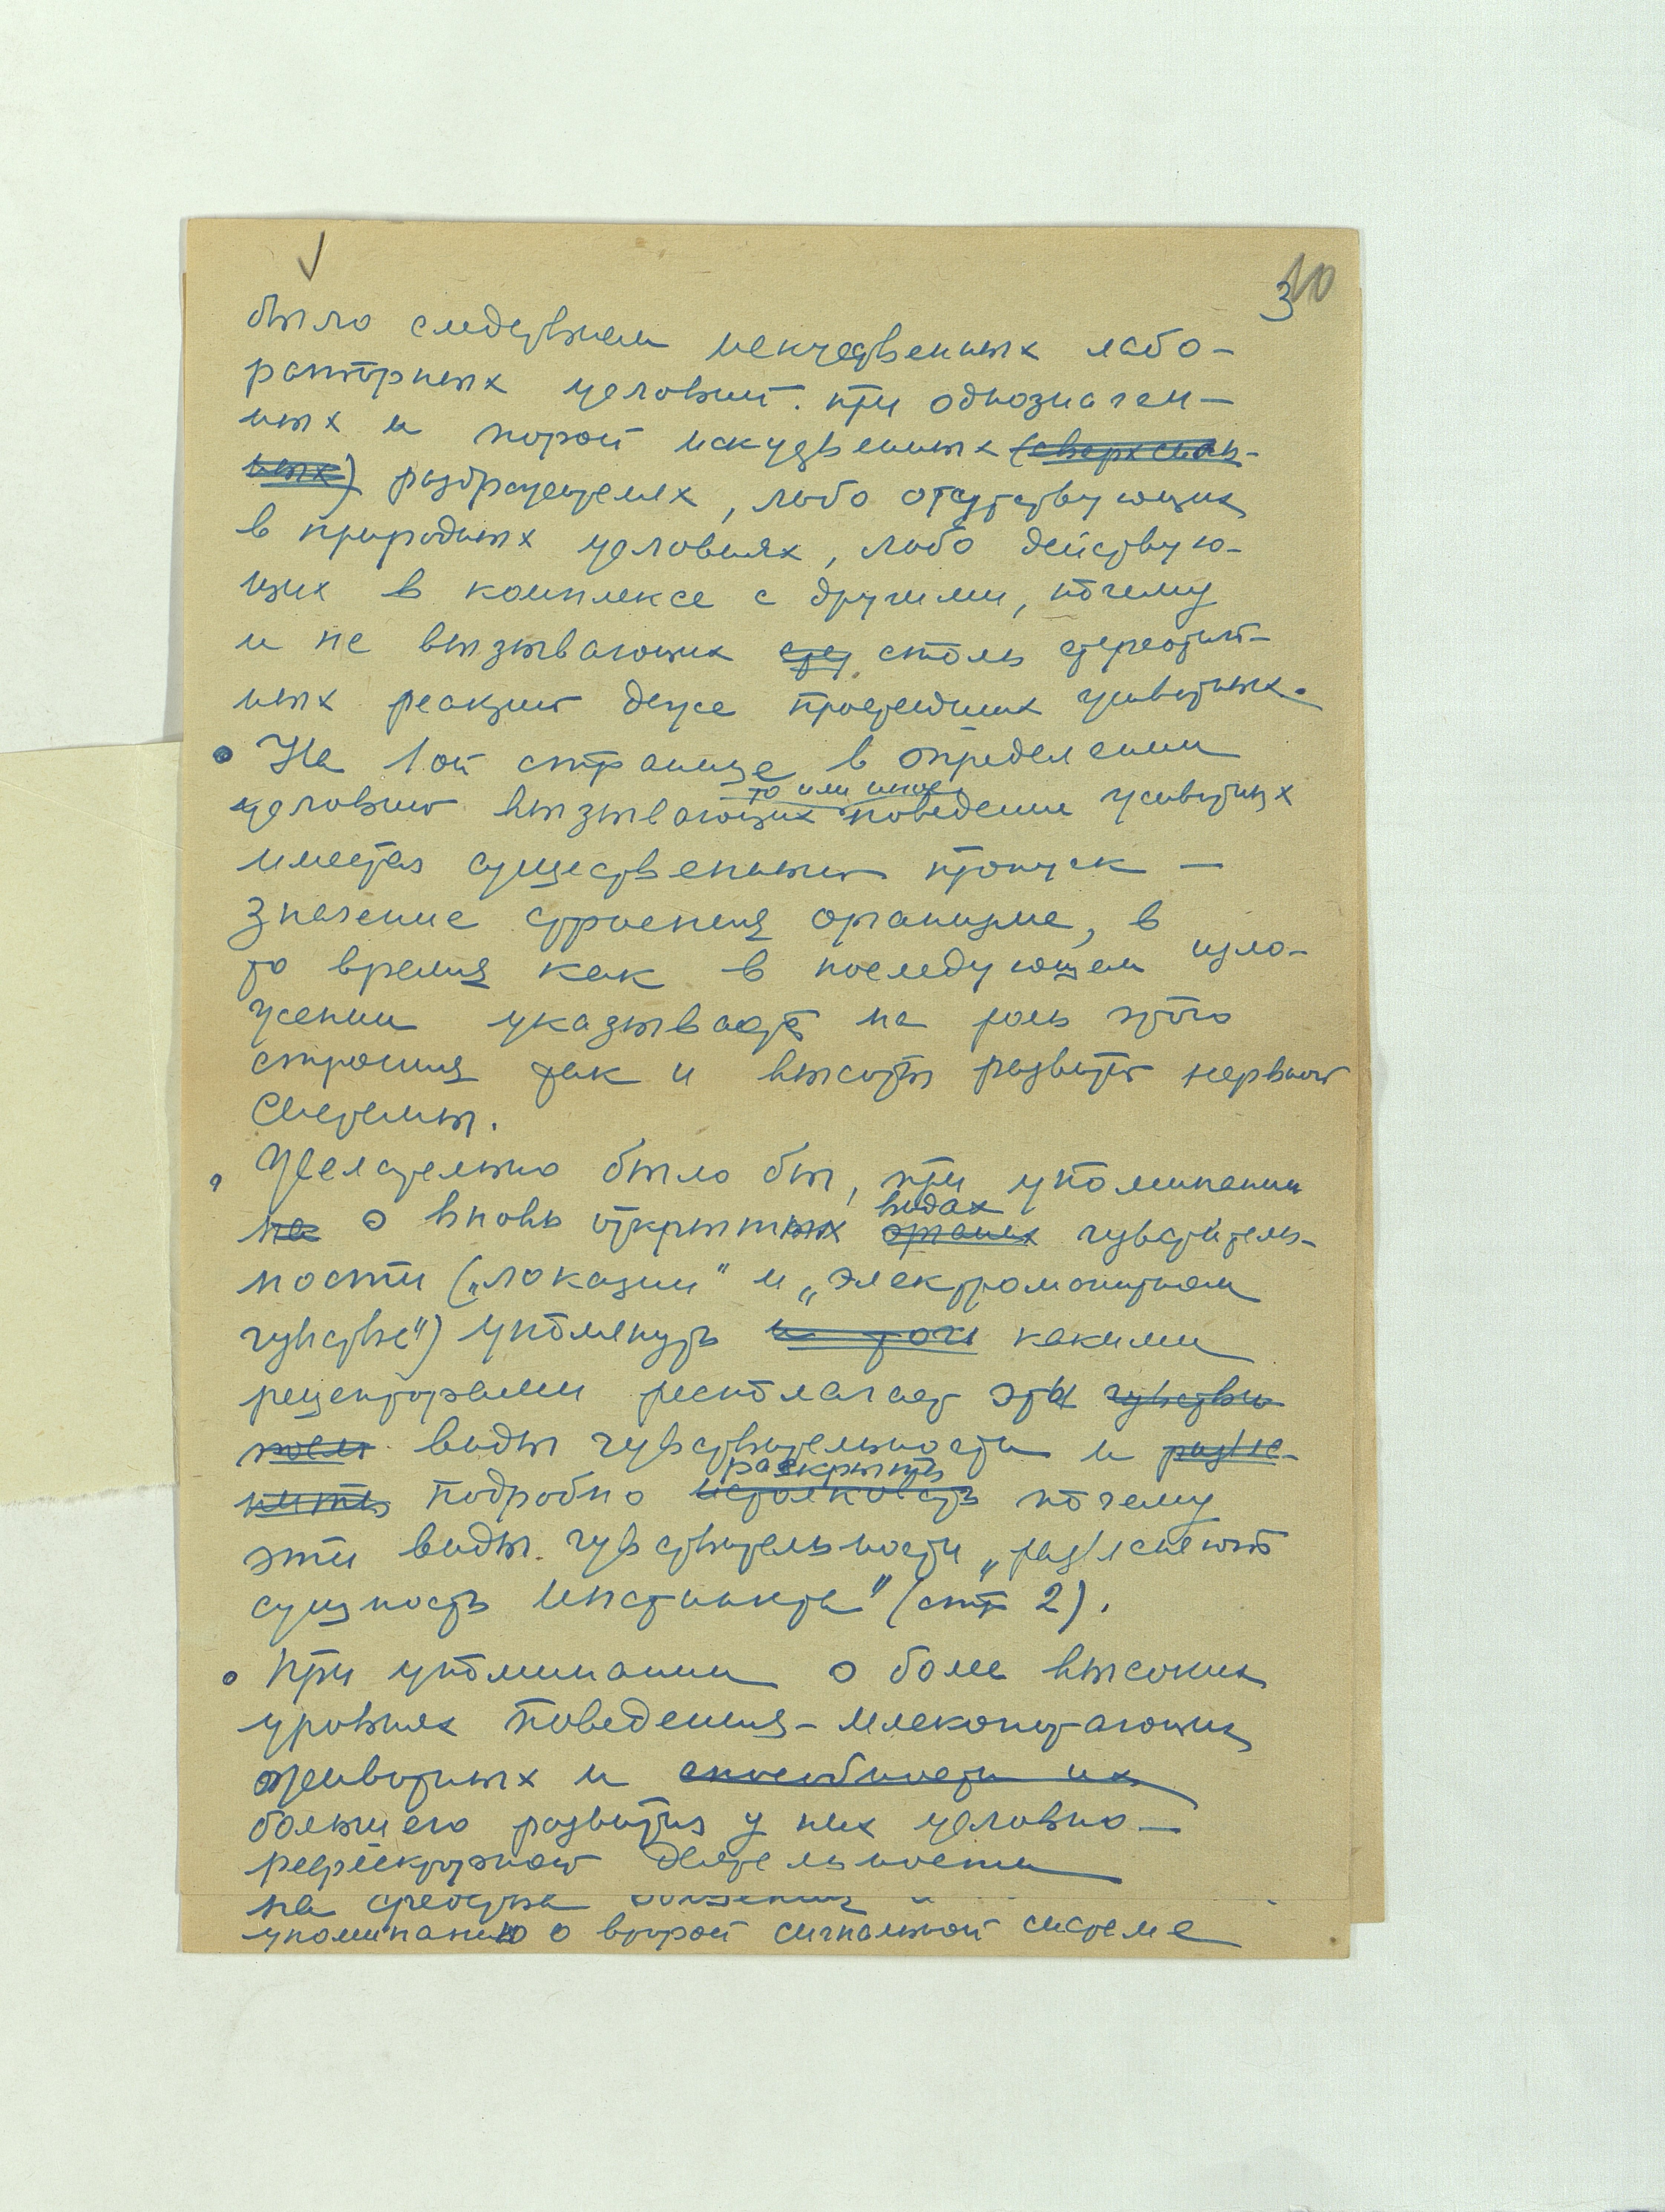 3 10
было следствием искусственных лабо-
раторных условий при однозначен-
ных и порой искусственных (сверхсиль-
ных) раздражителях, либо отсутствующих
в природных условиях, либо действую-
щих в комплексе с другими, почему
и не вызывающих столь стереотип-
ных реакций даже простейших животных.
На 1ой странице в определении
то или иное
условий вызывающих поведение животных
имеется существенный пропуск —
значение строения организма, в
то время как в последующем изло-
жении указывает на роль этого
строения так и высоты развития нервной
системы.
Желательно было бы, при упоминании
видах
на о вновь открытых органах чувствитель-
ности („локации" и „электромагнитном
чувстве") упомянуть какими
рецепторами располагает эти чувстви
виды чувствительности и разъяс-
раскрыть
нить подробно истолковать почему
эти виды чувствительности „разъясняют
сущность инстинкта" (стр 2).
При упоминании о более высоких
уровнях поведения - млекопитающих
животных и способности их
большего развития у них условно-
рефлекторной деятельности
на средства общения и
упоминанию о второй сигнальной системе